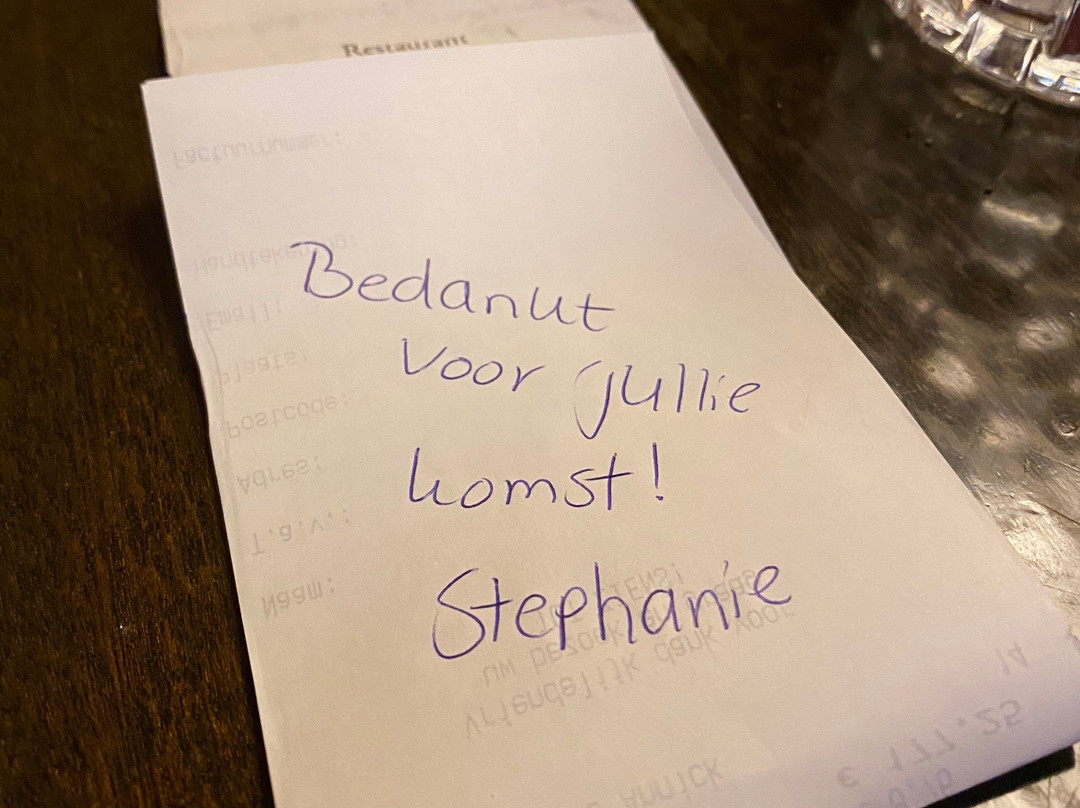 Restaurant
Factuurnummer:
Handtekening:
Bedankt
Email:
voor jullie
Plaats:
Postcode:
komst!
Adres:
T.a.v.:
Stephanie
Naam:
uw bezoek
Vriendelijk dank voor
14
€ 177.25
Annick